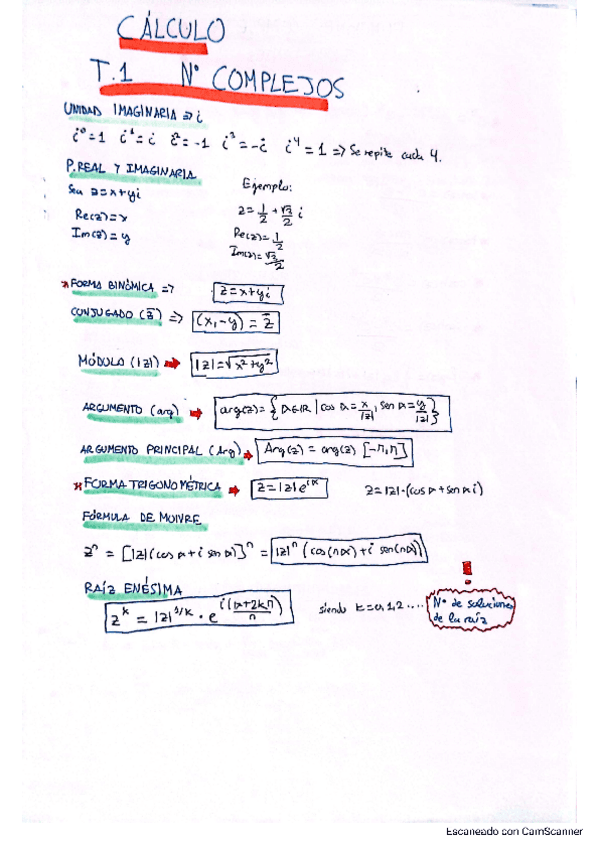 CÁLCULO
T.1 Nº COMPLEJOS
UNIDAD IMAGINARIA => i
i⁰=1 i¹=i i²=-1 i³=-i i⁴=1 => Se repite cada 4.
P. REAL Y IMAGINARIA
Sea z=x+yi
Re(z)=x
Im(z)=y
Ejemplo:
z=1/2+√3/2 i
Re(z)=1/2
Im(z)=√3/2
*FORMA BINÓMICA => z=x+yi
CONJUGADO (z̄) => (x,-y)=z̄
MÓDULO (|z|) → |z|=√x²+y²
ARGUMENTO (arg) → arg(z)={α∈ℝ | cos α=x/|z|, sen α=y/|z|}
ARGUMENTO PRINCIPAL (Arg) → Arg(z)=arg(z) [-π,π]
*FORMA TRIGONOMÉTRICA → z=|z|e^(iα) z=|z|·(cos α+sen α i)
FÓRMULA DE MOIVRE
zⁿ = [|z|(cos α+i sen α)]ⁿ = |z|ⁿ (cos(nα)+i sen(nα))
RAÍZ ENÉSIMA
z^k = |z|^(1/k) · e^(i((α+2kπ)/n)) siendo k=0,1,2.... Nº de soluciones
de la raíz
!
Escaneado con CamScanner